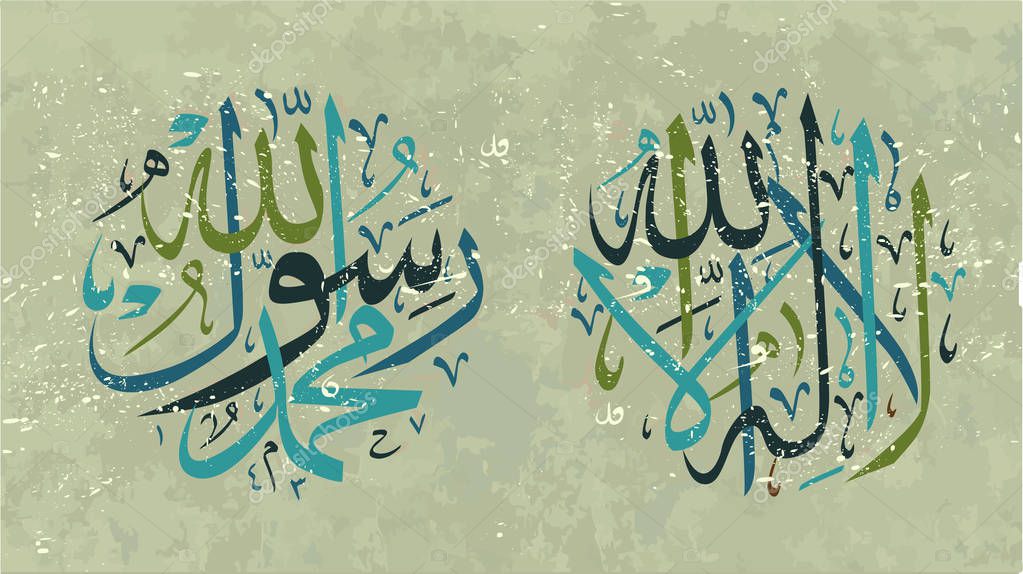 لا إله إلا الله
محمد رسول الله
depositphotos